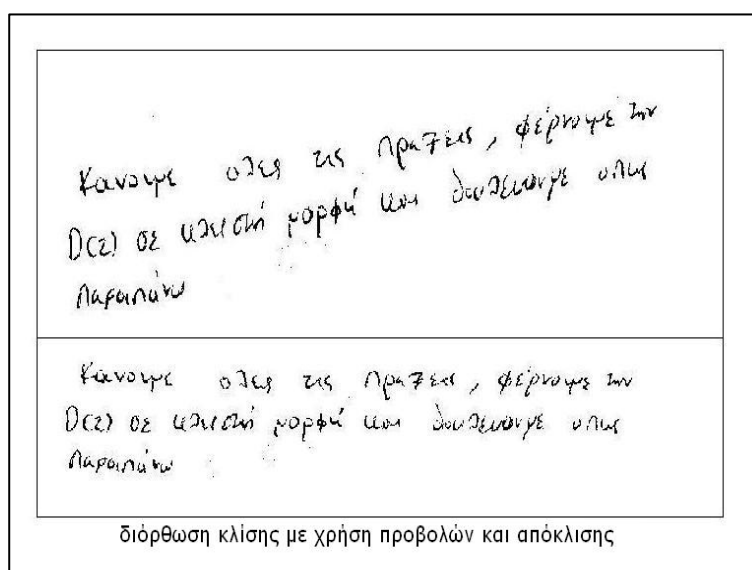 Κάνουμε όλες τις πράξεις, φέρνουμε την
D(z) σε κλειστή μορφή και δουλεύουμε όπως
παραπάνω
Κάνουμε όλες τις πράξεις, φέρνουμε την
D(z) σε κλειστή μορφή και δουλεύουμε όπως
παραπάνω
διόρθωση κλίσης με χρήση προβολών και απόκλισης